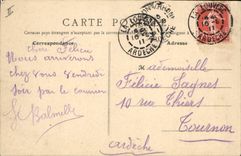 CARTE POSTALE
Correspondance
Adresse
Chère Félicie
Nous arriverons
chez vous vendredi
soir par le courrier
Balmelle
Mademoiselle
Félicie Sagnes
10 rue Thiers
Tournon
Ardèche
ARDÈCHE